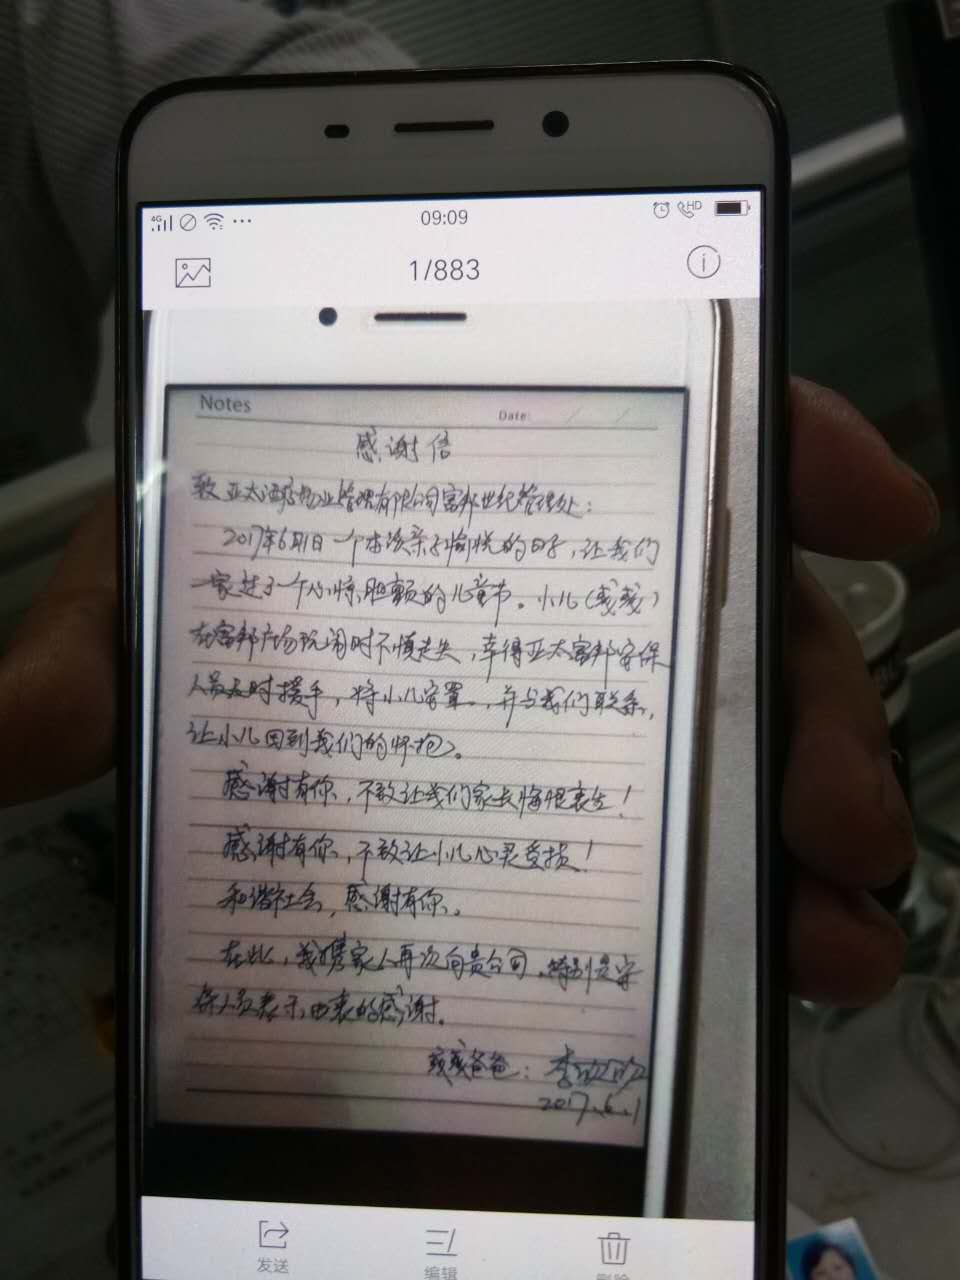 4G
09:09
HD
1/883
Notes
Date: / /
感谢信
致亚太酒店物业管理有限公司富邦世纪管理处：
2017年6月1日一个本该亲子愉悦的日子，让我们
一家过了一个心惊胆颤的儿童节。小儿（彧彧）
在富邦广场玩闹时不慎走失，幸得亚太富邦安保
人员及时援手，将小儿安置，并与我们联系，
让小儿回到我们的怀抱。
感谢有你，不致让我们家长悔恨衰生！
感谢有你，不致让小儿心灵受损！
和谐社会，感谢有你。
在此，我携家人再次向贵公司，特别是安
保人员表示由衷的感谢。
彧彧爸爸：李
2017.6.1
发送
编辑
删除